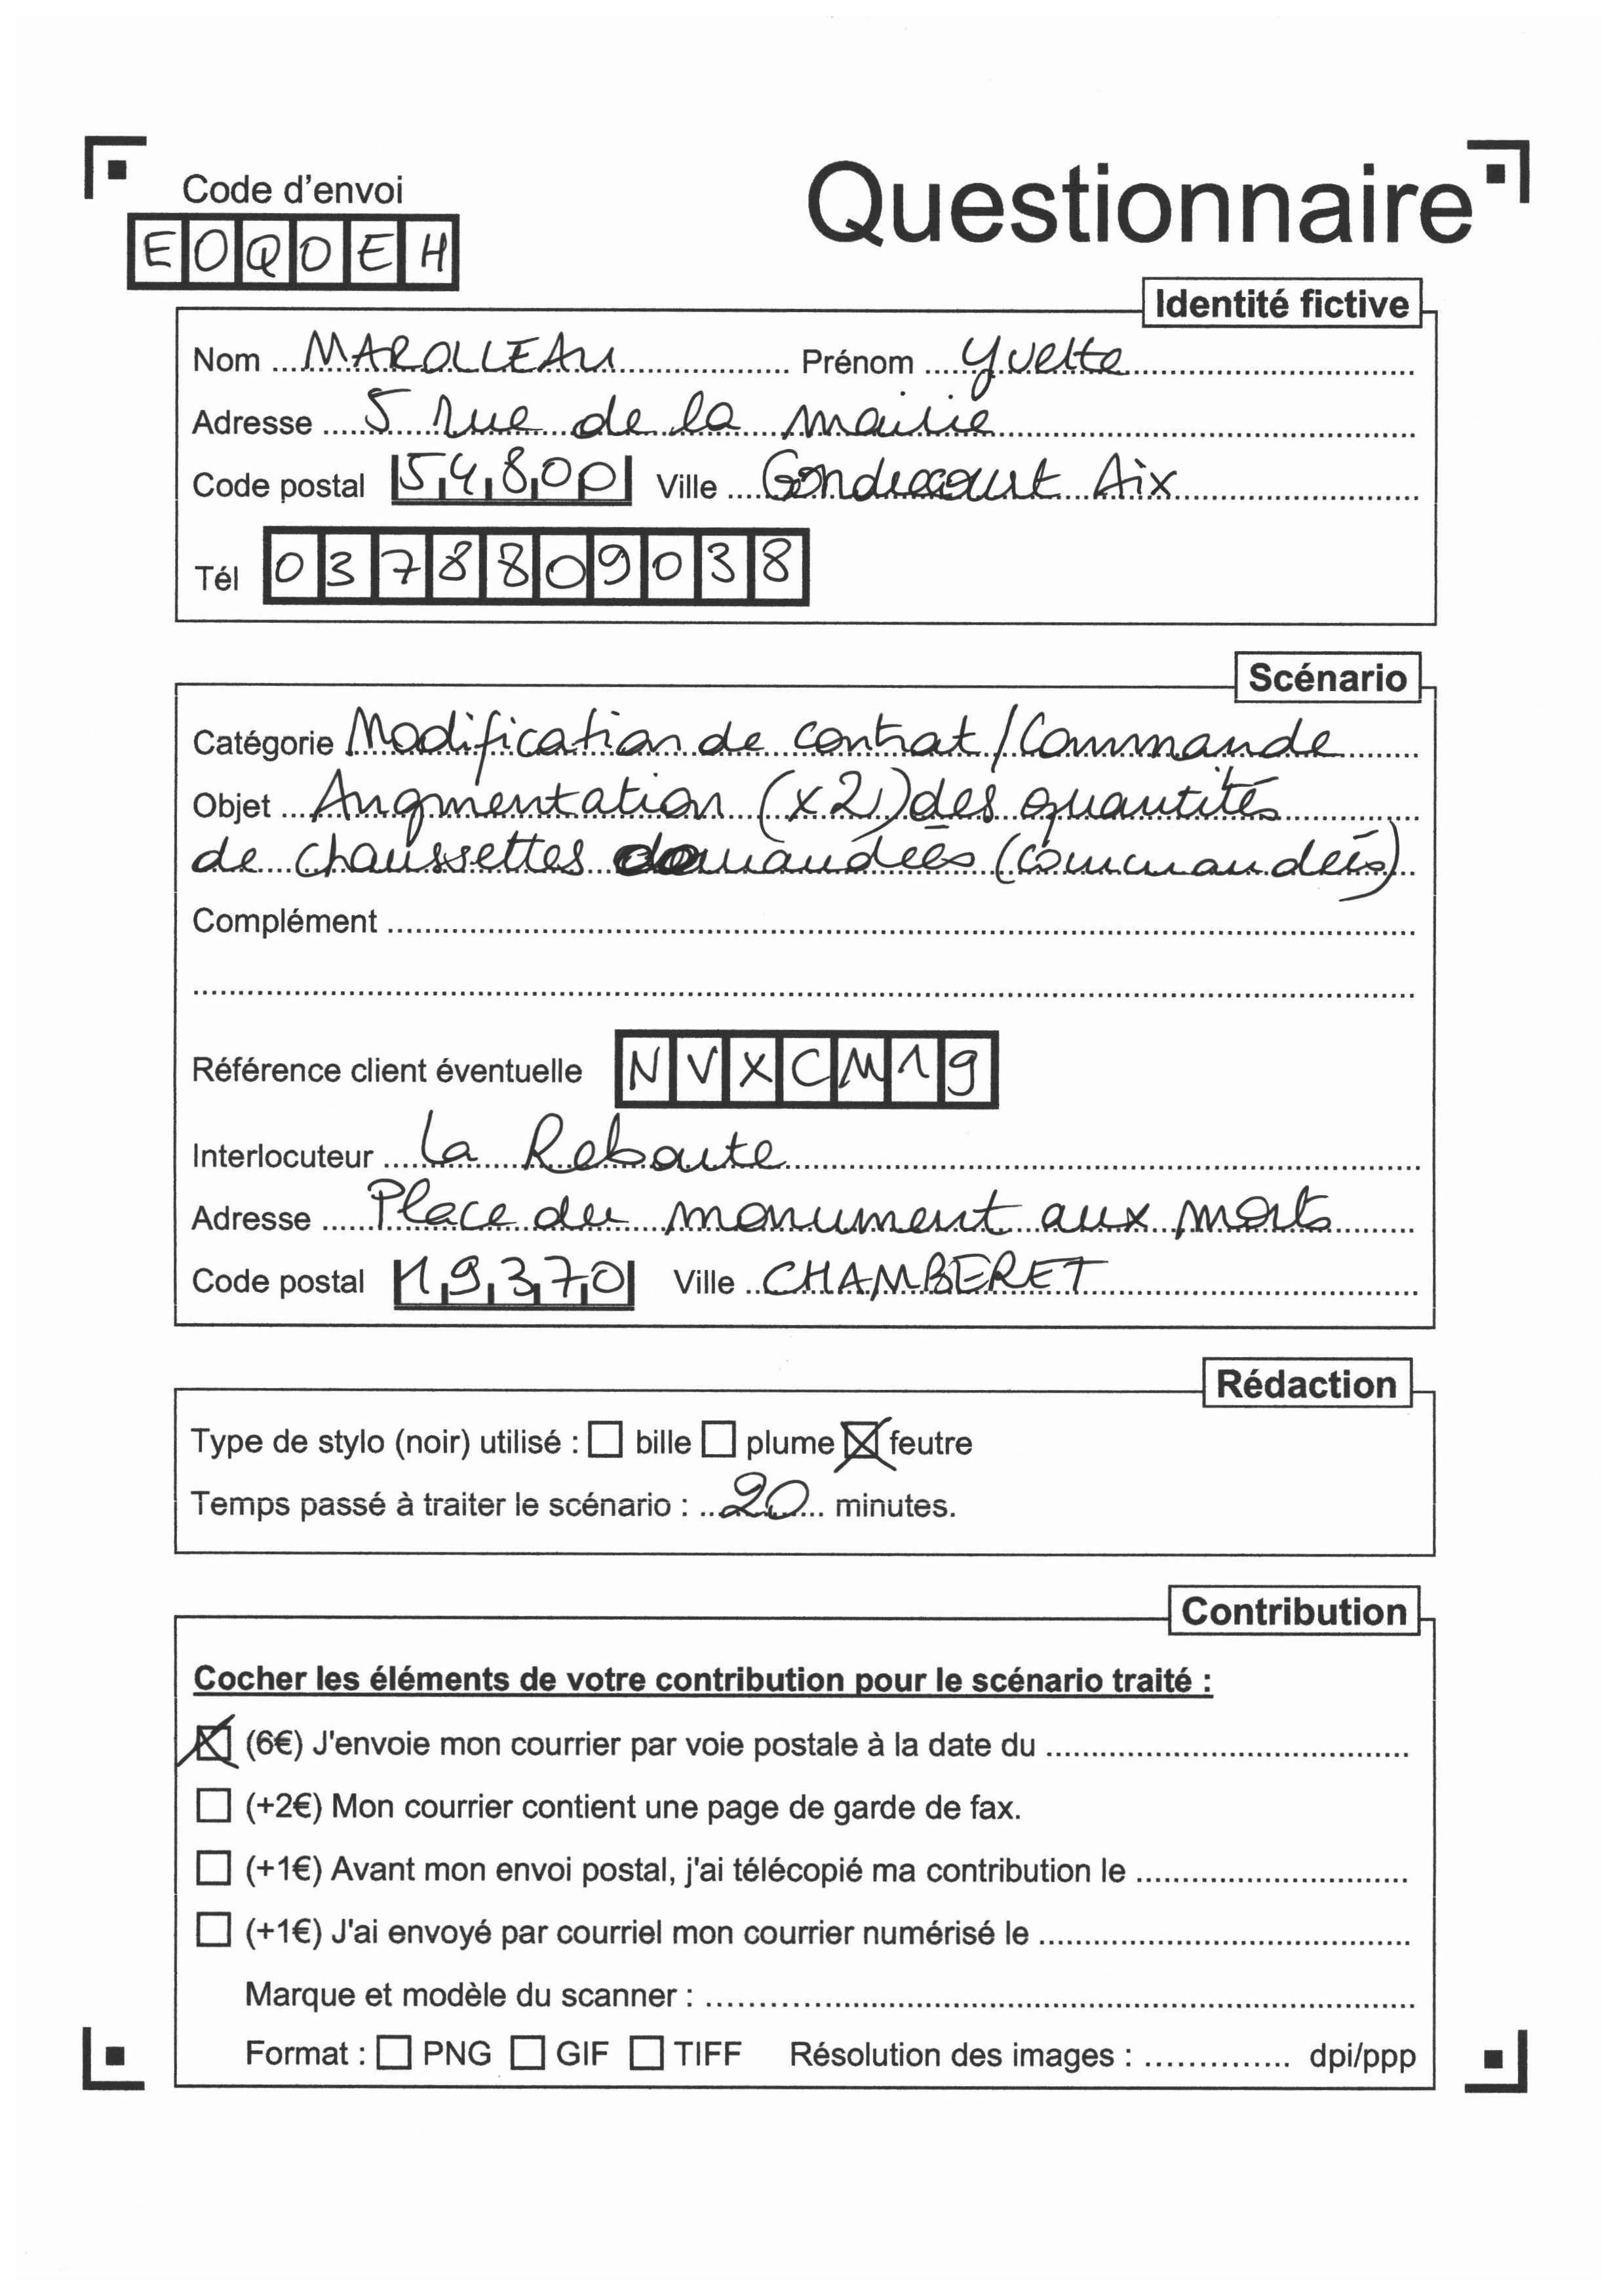 Code d'envoi
Questionnaire
EOQOEH
Identité fictive
Nom MAROLLEAU Prénom Yvette
Adresse 5 rue de la mairie
Code postal 54800 Ville Gondrecourt Aix
Tél 0378809038
Scénario
Catégorie Modification de contrat / Commande
Objet Augmentation (x2) des quantités
de chaussettes demandées (commandées)
Complément
Référence client éventuelle NVXCM19
Interlocuteur La Reboute
Adresse Place du monument aux morts
Code postal 19370 Ville CHAMBERET
Rédaction
Type de stylo (noir) utilisé : bille plume feutre
Temps passé à traiter le scénario : 20 minutes.
Contribution
Cocher les éléments de votre contribution pour le scénario traité :
(6€) J'envoie mon courrier par voie postale à la date du
(+2€) Mon courrier contient une page de garde de fax.
(+1€) Avant mon envoi postal, j'ai télécopié ma contribution le
(+1€) J'ai envoyé par courriel mon courrier numérisé le
Marque et modèle du scanner :
Format : PNG GIF TIFF Résolution des images : dpi/ppp